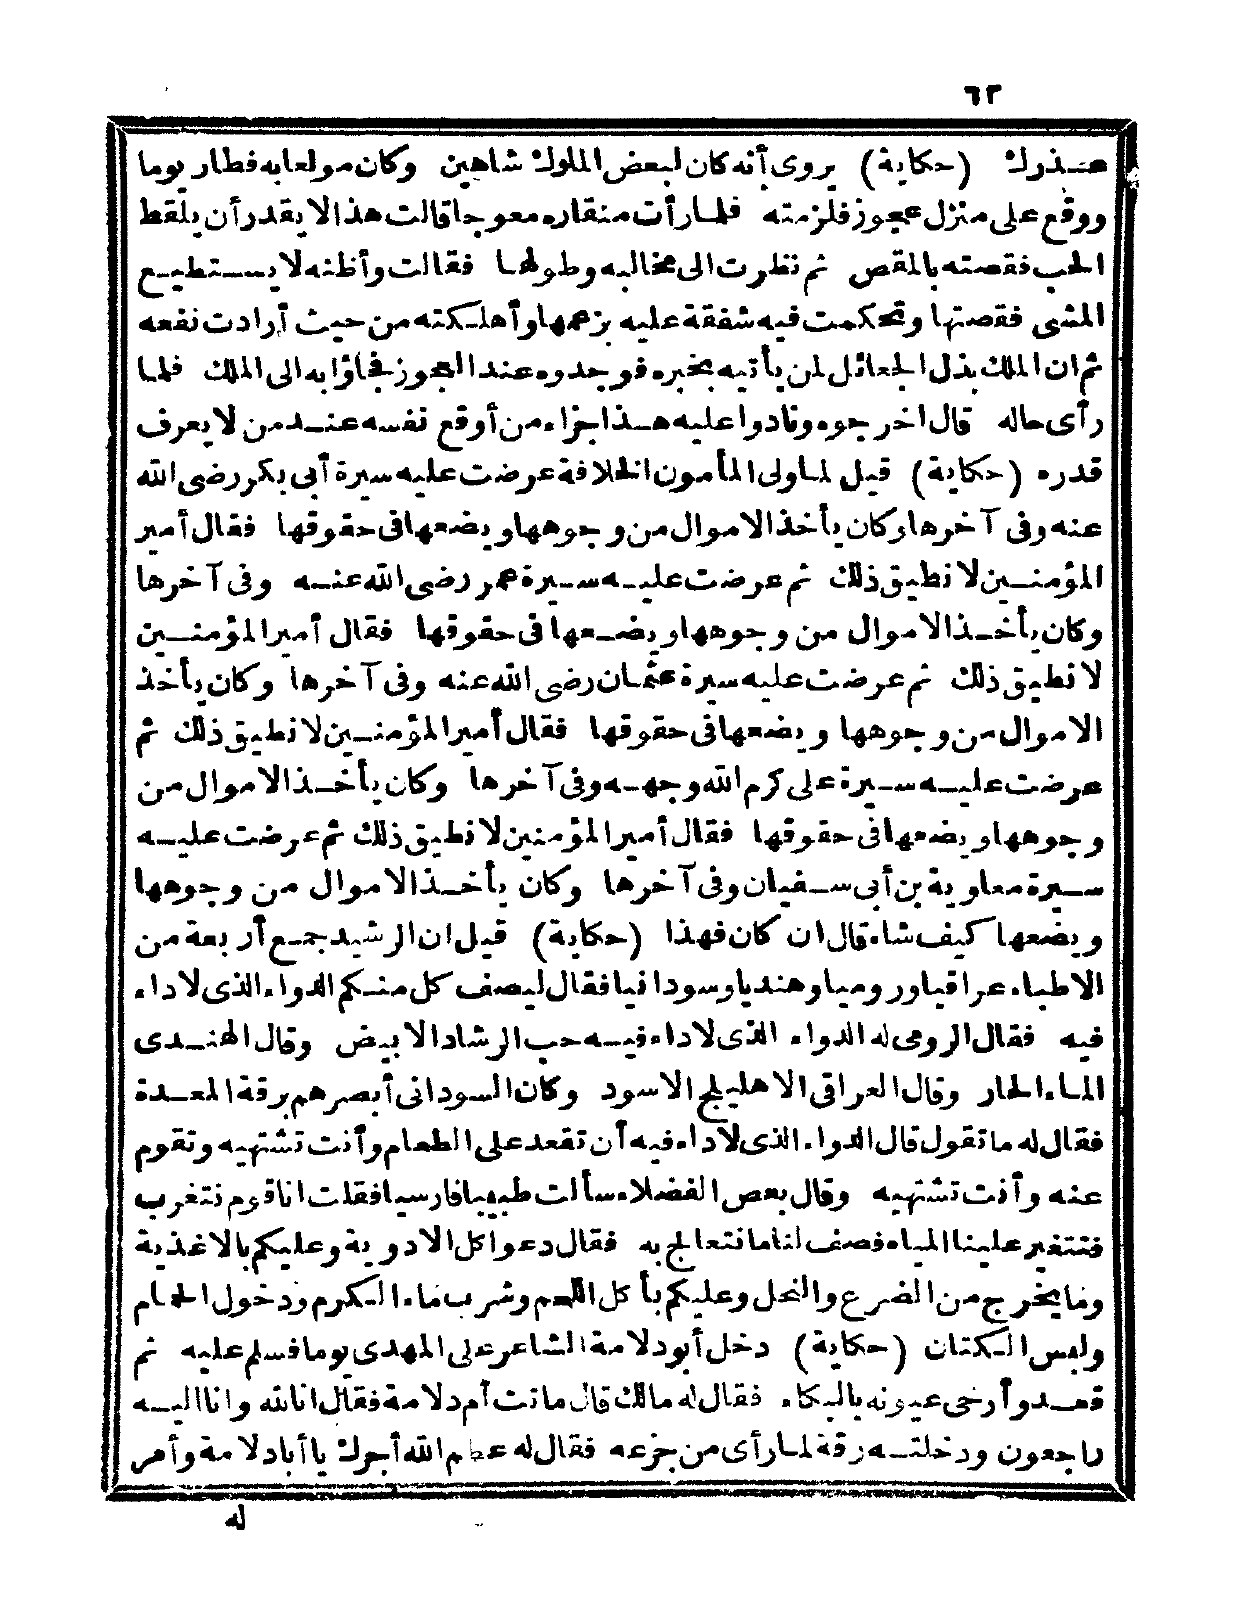 ٦٢
هـذرك (حكاية) يروى أنه كان لبعض الملوك شاهين وكان مولعا به فطار يوما
ووقع على منزل عجوز فلزمته فلما رأت منقاره معوجا قالت هذا لا يقدر أن يلقط
الحب فقصته بالمقص ثم نظرت الى مخالبه وطولها فقالت وأظنه لا يستطيع
المشى فقصتها وتحكمت فيه شفقة عليه بزعمها وأهلكته من حيث أرادت نفعه
ثم ان الملك بذل الجعائل لمن يأتيه بخبره فوجدوه عند العجوز فجاؤا به الى الملك فلما
رأى حاله قال اخرجوه ونادوا عليه هذا جزاء من أوقع نفسه عند من لا يعرف
قدره (حكاية) قيل لما ولى المأمون الخلافة عرضت عليه سيرة أبى بكر رضى الله
عنه وفى آخرها وكان يأخذ الاموال من وجوهها ويضعها فى حقوقها فقال أمير
المؤمنين لا نطيق ذلك ثم عرضت عليه سيرة عمر رضى الله عنه وفى آخرها
وكان يأخذ الاموال من وجوهها ويضعها فى حقوقها فقال أمير المؤمنين
لا نطيق ذلك ثم عرضت عليه سيرة عثمان رضى الله عنه وفى آخرها وكان يأخذ
الاموال من وجوهها ويضعها فى حقوقها فقال أمير المؤمنين لا نطيق ذلك ثم
عرضت عليه سيرة على كرم الله وجهه وفى آخرها وكان يأخذ الاموال من
وجوهها ويضعها فى حقوقها فقال أمير المؤمنين لا نطيق ذلك ثم عرضت عليه
سيرة معاوية بن أبى سفيان وفى آخرها وكان يأخذ الاموال من وجوهها
ويضعها كيف شاء قال ان كان فهذا (حكاية) قيل ان الرشيد جمع أربعة من
الاطباء عراقيا وروميا وهنديا وسودانيا فقال ليصف كل منكم الدواء الذى لا داء
فيه فقال الرومى له الدواء الذى لا داء فيه حب الرشاد الابيض وقال الهندى
الماء الحار وقال العراقى الاهليلج الاسود وكان السودانى أبصرهم برقة المعدة
فقال له ما تقول قال الدواء الذى لا داء فيه أن تقعد على الطعام وأنت تشتهيه وتقوم
عنه وأنت تشتهيه وقال بعض الفضلاء سألت طبيبا فارسيا فقلت انا قوم نتغرب
فتتغير علينا المياه فصف لنا ما نتعالج به فقال دعوا كل الادوية وعليكم بالاغذية
وما يخرج من الضرع والنحل وعليكم بأكل اللحم وشرب ماء الكرم ودخول الحمام
ولبس الكتان (حكاية) دخل أبو دلامة الشاعر على المهدى يوما فسلم عليه ثم
قعد وأرخى عيونه بالبكاء فقال له مالك قال ماتت أم دلامة فقال انا لله وانا اليه
راجعون ودخلته رقة لما رأى من جزعه فقال له عظم الله أجرك يا أبا دلامة وأمر
له